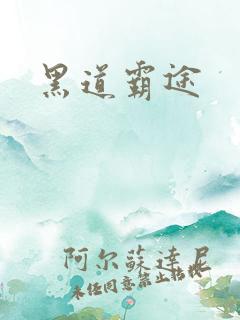 黑道霸途
阿尔苏达尼
未经同意禁止转载